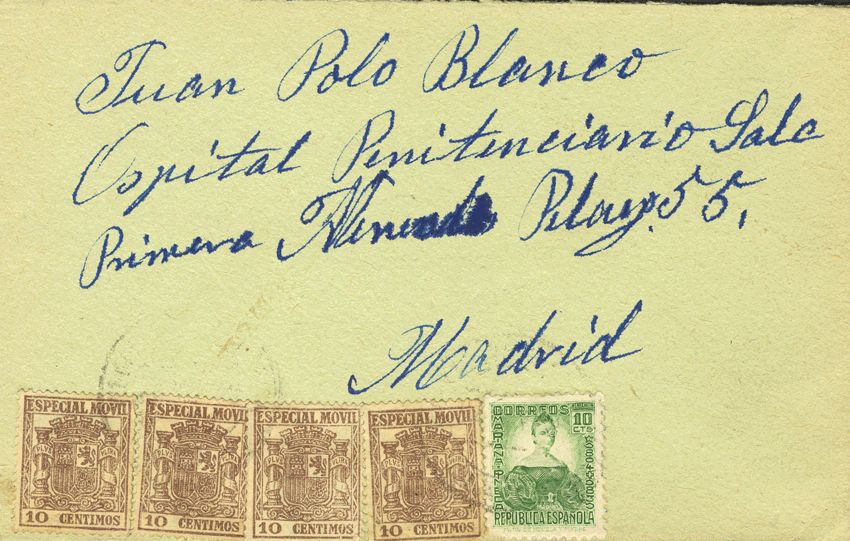 Juan Polo Blanco
Ospital Penitenciario Sala
Primera Pelayo 55,
Madrid
ESPECIAL MOVIL
10 CENTIMOS
ESPECIAL MOVIL
10 CENTIMOS
ESPECIAL MOVIL
10 CENTIMOS
ESPECIAL MOVIL
10 CENTIMOS
CORREOS
10
CTS
MARIANA PINEDA
REPUBLICA ESPAÑOLA